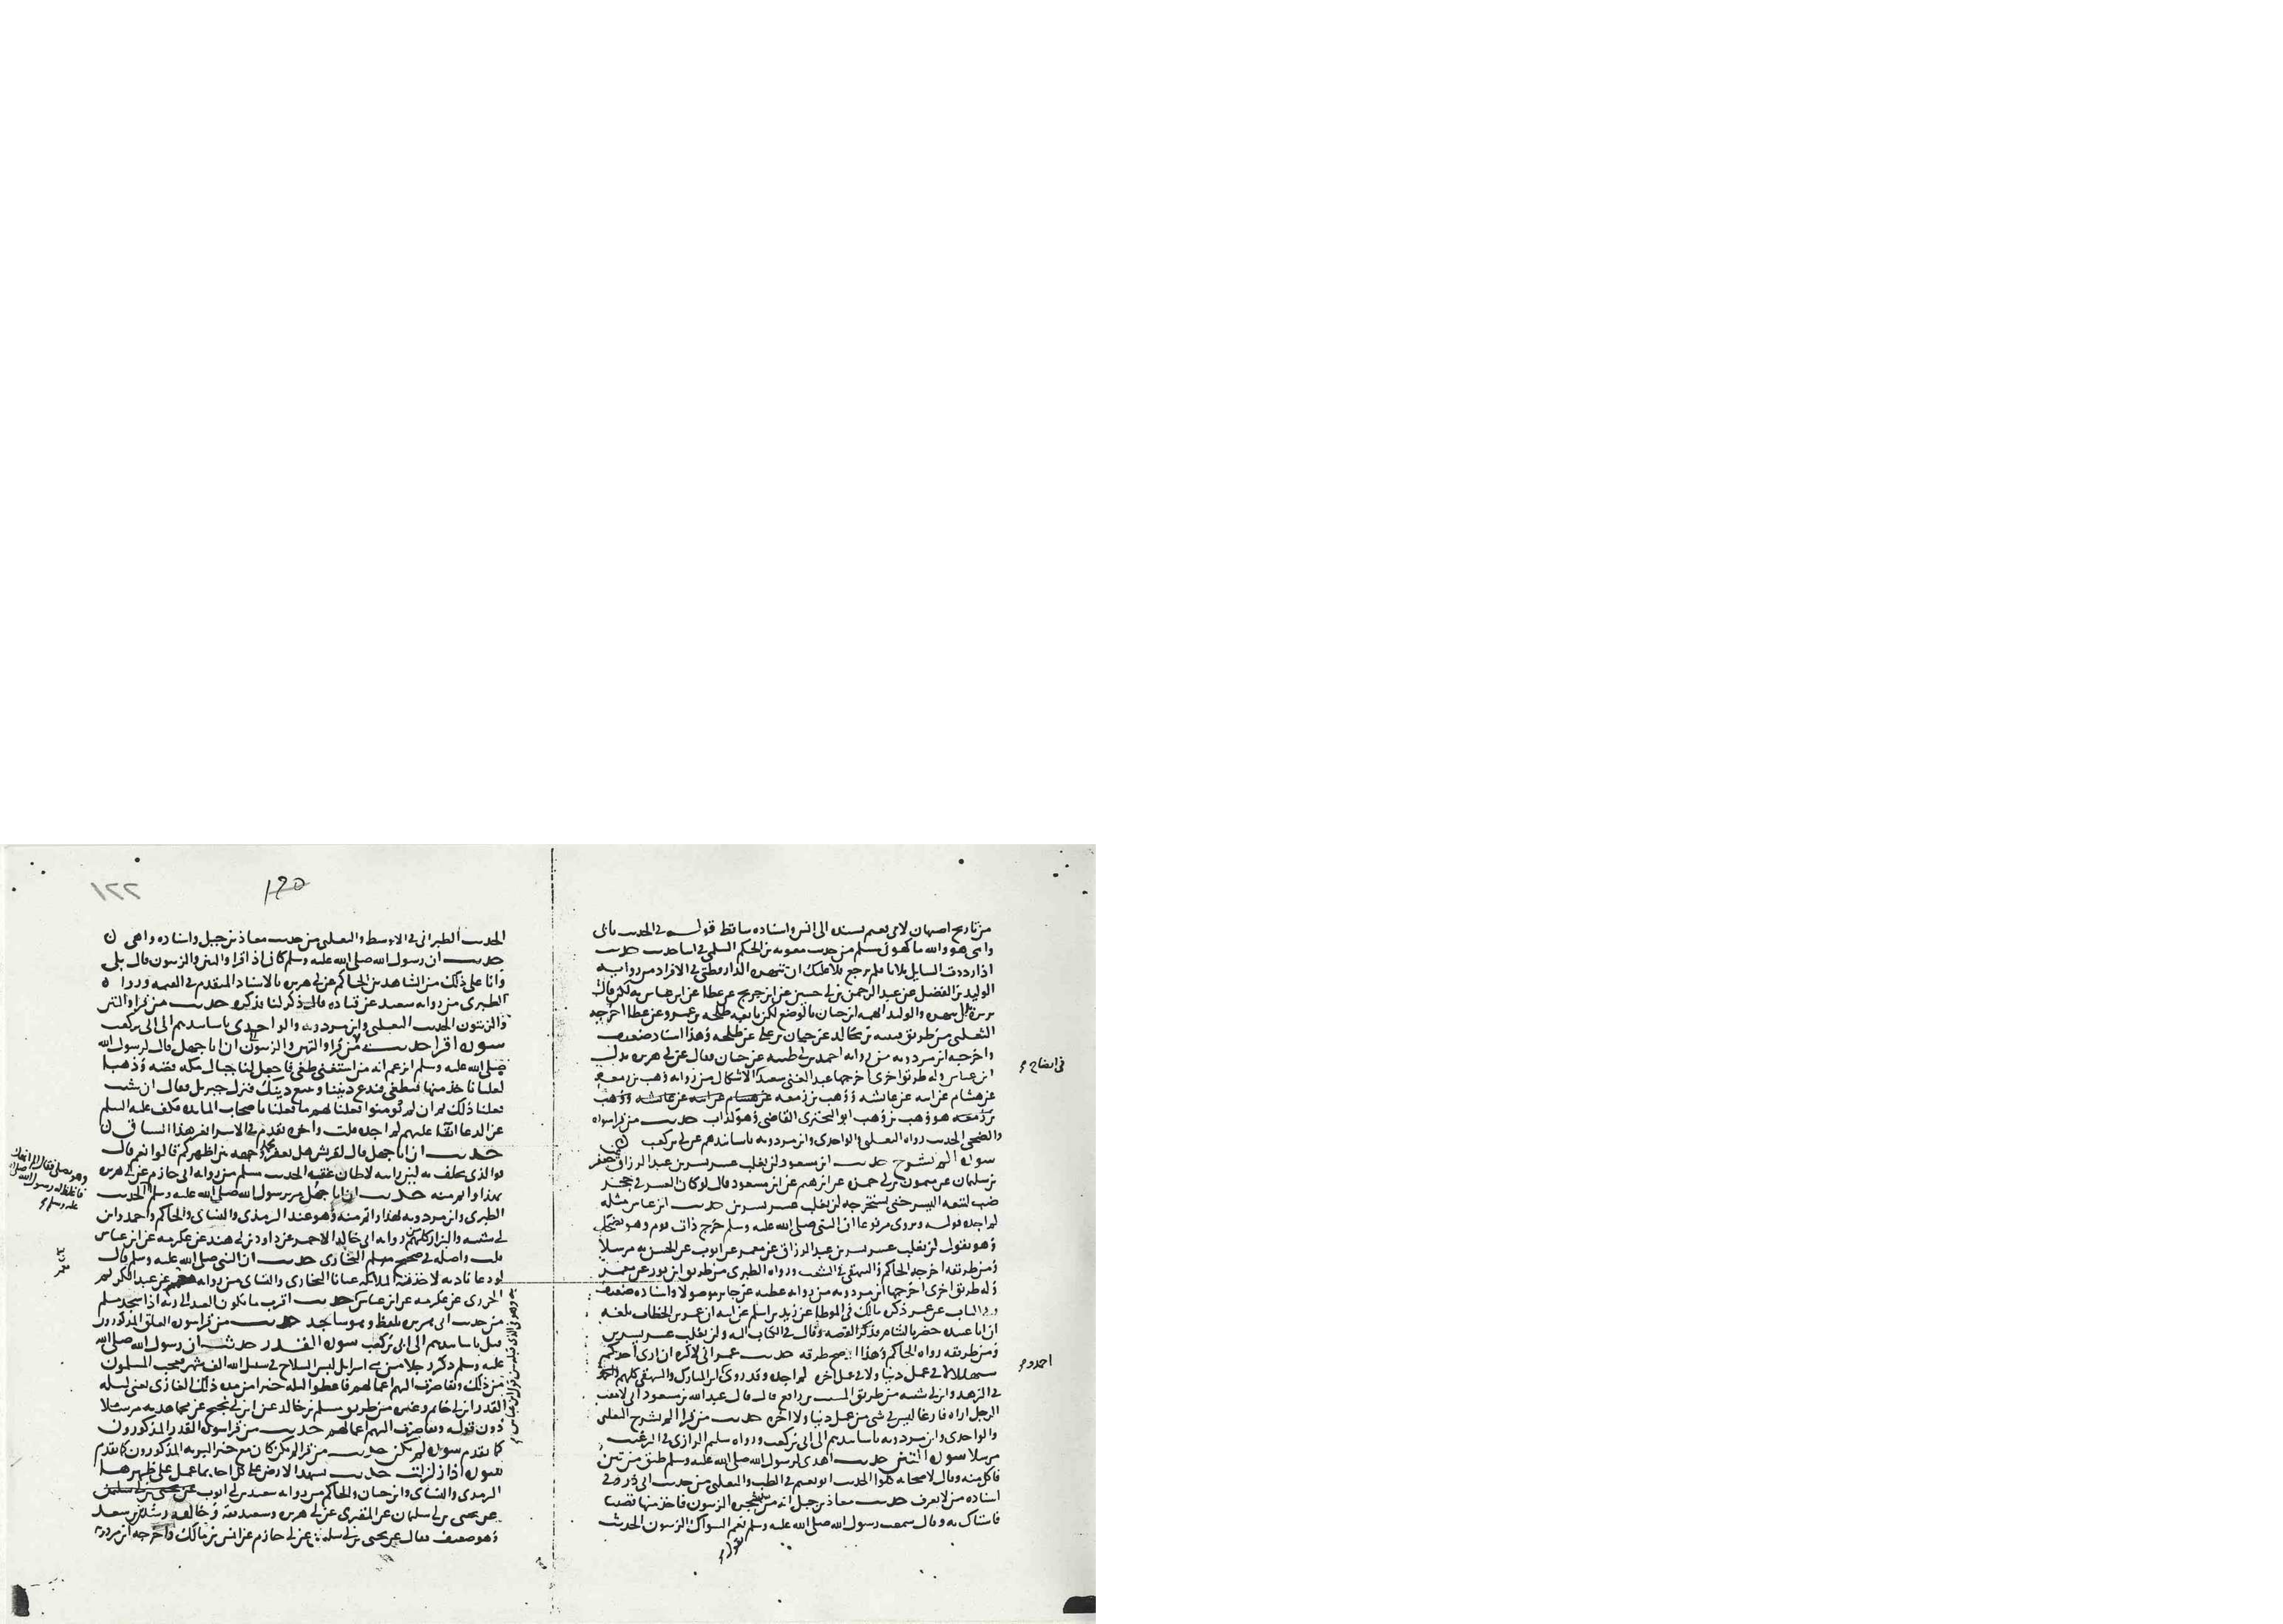 من تاريخ اصبهان لابي نعيم بسنده الى انس واسناده ساقط قوله في الحديث بابي
وامي هو والله ما كهرني مسلم من حديث معوية بن الحكم السلمي في اثنا حديث حديث
اذا رددت السايل ثلاثا فلم يرجع فلا عليك ان تزبره الدارقطني في الافراد من رواية
الوليد بن الفضل عن عبد الرحمن بن حسين عن ابن جريج عن عطا عن ابن عباس به لكن قال
والوليد اتهمه ابن حبان بالوضع لكن تابعه طلحة بن عمرو عن عطا اخرجه
الثعلبي من طريق بن خالد عن حبان بن علي عن طلحة وهذا اسناد ضعيف
واخرجه ابن مردويه من رواية احمد بن ابي طيبة عن حبان فقال عن ابي هريرة بدل
ابن عباس وله طريق اخرى اخرجها عبد الغني بن سعيد الاشكال من رواية وهب بن زمعة
عن هشام عن ابيه عن عايشة ووهب بن زمعة عن هشام عن ابيه عن عايشة ووهب
بن زمعة هو وهب بن وهب ابو البختري القاضي وهو كذاب حديث من قرا سورة
والضحى الحديث رواه الثعلبي والواحدي وابن مردويه باساندهم عن ابي بن كعب
سورة الم نشرح حديث ابن مسعود لن يغلب عسر يسرين عبد الرزاق عن جعفر
بن سليمان عن ميمون بن ابي حمزة عن ابرهيم عن ابن مسعود قال لو كان العسر في جحر
ضب لتبعه اليسر حتى يستخرجه لن يغلب عسر يسرين حديث ابن عباس مثله
لم اجده قوله وروى مرفوعا ان النبي صلى الله عليه وسلم خرج ذات يوم وهو يضحك
وهو يقول لن يغلب عسر يسرين عبد الرزاق عن معمر عن ايوب عن الحسن به مرسلا
ومن طريقه اخرجه الحاكم والبيهقي في الشعب ورواه الطبري من طريق ابن ثور عن معمر
وله طريق اخرى اخرجها ابن مردويه من رواية عطية عن جابر موصولا واسناده ضعيف
وفي الباب عن عمر ذكره مالك في الموطا عن زيد بن اسلم عن ابيه ان عمر بن الخطاب بلغه
ان ابا عبيدة حضر بالشام فذكر القصة وقال في الكتاب اليه ولن يغلب عسر يسرين
ومن طريقه رواه الحاكم وهذا اصح طرقه حديث عمر اني لاكره ان ارى احدكم
سبهللا لا في عمل دنيا ولا في عمل اخره لم اجده وقد روى ابن المبارك والبيهقي كلهم
في الزهد وابن ابي شيبة من طريق المسيب بن رافع قال قال عبد الله بن مسعود اني لامقت
الرجل اراه فارغا ليس في شي من عمل دنيا ولا اخره حديث من قرا الم نشرح الثعلبي
والواحدي وابن مردويه باسانيدهم الى ابي بن كعب ورواه سليم الرازي في الترغيب
مرسلا سورة التين حديث اهدي لرسول الله صلى الله عليه وسلم طبق من تين
فاكل منه وقال لاصحابه كلوا الحديث ابو نعيم في الطب والثعلبي من حديث ابي ذر وفي
اسناده من لا يعرف حديث معاذ بن جبل انه مر بشجرة الزيتون فاخذ منها قضيبا
فاستاك به وقال سمعت رسول الله صلى الله عليه وسلم نعم السواك الزيتون الحديث
يقول
في ايضاح
احمد و
١٢٢
الحديث الطبراني في الاوسط والثعلبي من حديث معاذ بن جبل واسناده واهي
حديث ان رسول الله صلى الله عليه وسلم كان اذا قرا والتين والزيتون قال بلى
وانا على ذلك من الشاهدين الحاكم عن ابي هريرة بالاسناد المتقدم في القيمة ورواه
الطبري من رواية سعيد عن قتادة قال ذكر لنا فذكره حديث من قرا والتين
والزيتون الحديث الثعلبي وابن مردويه والواحدي باسانيدهم الى ابي بن كعب
سورة اقرا حديث من قرا والتين والزيتون ان ابا جهل قال لرسول الله
صلى الله عليه وسلم اتزعم انه من استغنى طغى فاجعل لنا جبال مكة فضة وذهبا
لعلنا ناخذ منها فنطغى فندع ديننا ونتبع دينك فنزل جبريل فقال ان شيت
فعلنا ذلك ثم ان لم يومنوا فعلنا بهم ما فعلنا باصحاب المايدة فكف عليه السلم
عن الدعا ابقا عليهم لم اجده قلت واخره تقدم في الاسرا بغير هذا السياق
حديث ان ابا جهل قال لقريش هل يعفر محمد وجهه بين اظهركم قالوا نعم قال
فوالذي يحلف به لين رايته لاطان عنقه الحديث مسلم من رواية ابي حازم عن ابي هريرة
بهذا واتم منه حديث ان ابا جهل مر برسول الله صلى الله عليه وسلم الحديث
الطبري وابن مردويه بهذا واتم منه وهو عند الترمذي والنساي والحاكم واحمد وابن
ابي شيبة والبزار كلهم من رواية ابي خالد الاحمر عن داود بن ابي هند عن عكرمة عن ابن عباس
قلت واصله في صحيح البخاري حديث ان النبي صلى الله عليه وسلم قال
لو دعا ناديه لاخذته الملايكة عيانا البخاري والنساي من رواية عن عبد الكريم
الجزري عن عكرمة عن ابن عباس حديث اقرب ما يكون العبد الى ربه اذا سجد مسلم
من حديث ابي هريرة بلفظ وهو ساجد حديث من قرا سورة العلق المذكورون
قبل باسانيدهم الى ابي بن كعب سورة القدر حديث ان رسول الله صلى الله
عليه وسلم ذكر رجلا من بني اسرايل لبس السلاح في سبيل الله الف شهر فعجب المسلمون
من ذلك وتقاصرت اليهم اعمالهم فاعطوا ليلة خيرا من مدة ذلك الغازي يعني ليلة
القدر ابن ابي حاتم وغيره من طريق مسلم بن خالد عن ابن ابي نجيح عن مجاهد به مرسلا
دون قوله وتقاصرت اليهم اعمالهم حديث من قرا سورة القدر المذكورون
كما تقدم سورة لم يكن حديث من قرا لم يكن كان مع خير البرية المذكورون كما تقدم
سورة اذا زلزلت حديث تشهد الارض على كل احد بما عمل على ظهرها
الترمذي والنساي وابن حبان والحاكم من رواية سعيد بن ابي ايوب عن يحيى بن ابي سليمن
عن يحيى بن ابي سليمان عن المقبري عن ابي هريرة وسعيد ثقة وخالفه رشدين بن سعد
وهو ضعيف فقال عن يحيى بن ابي سليمن عن ابي حازم عن انس بن مالك واخرجه ابن مردويه
معمر